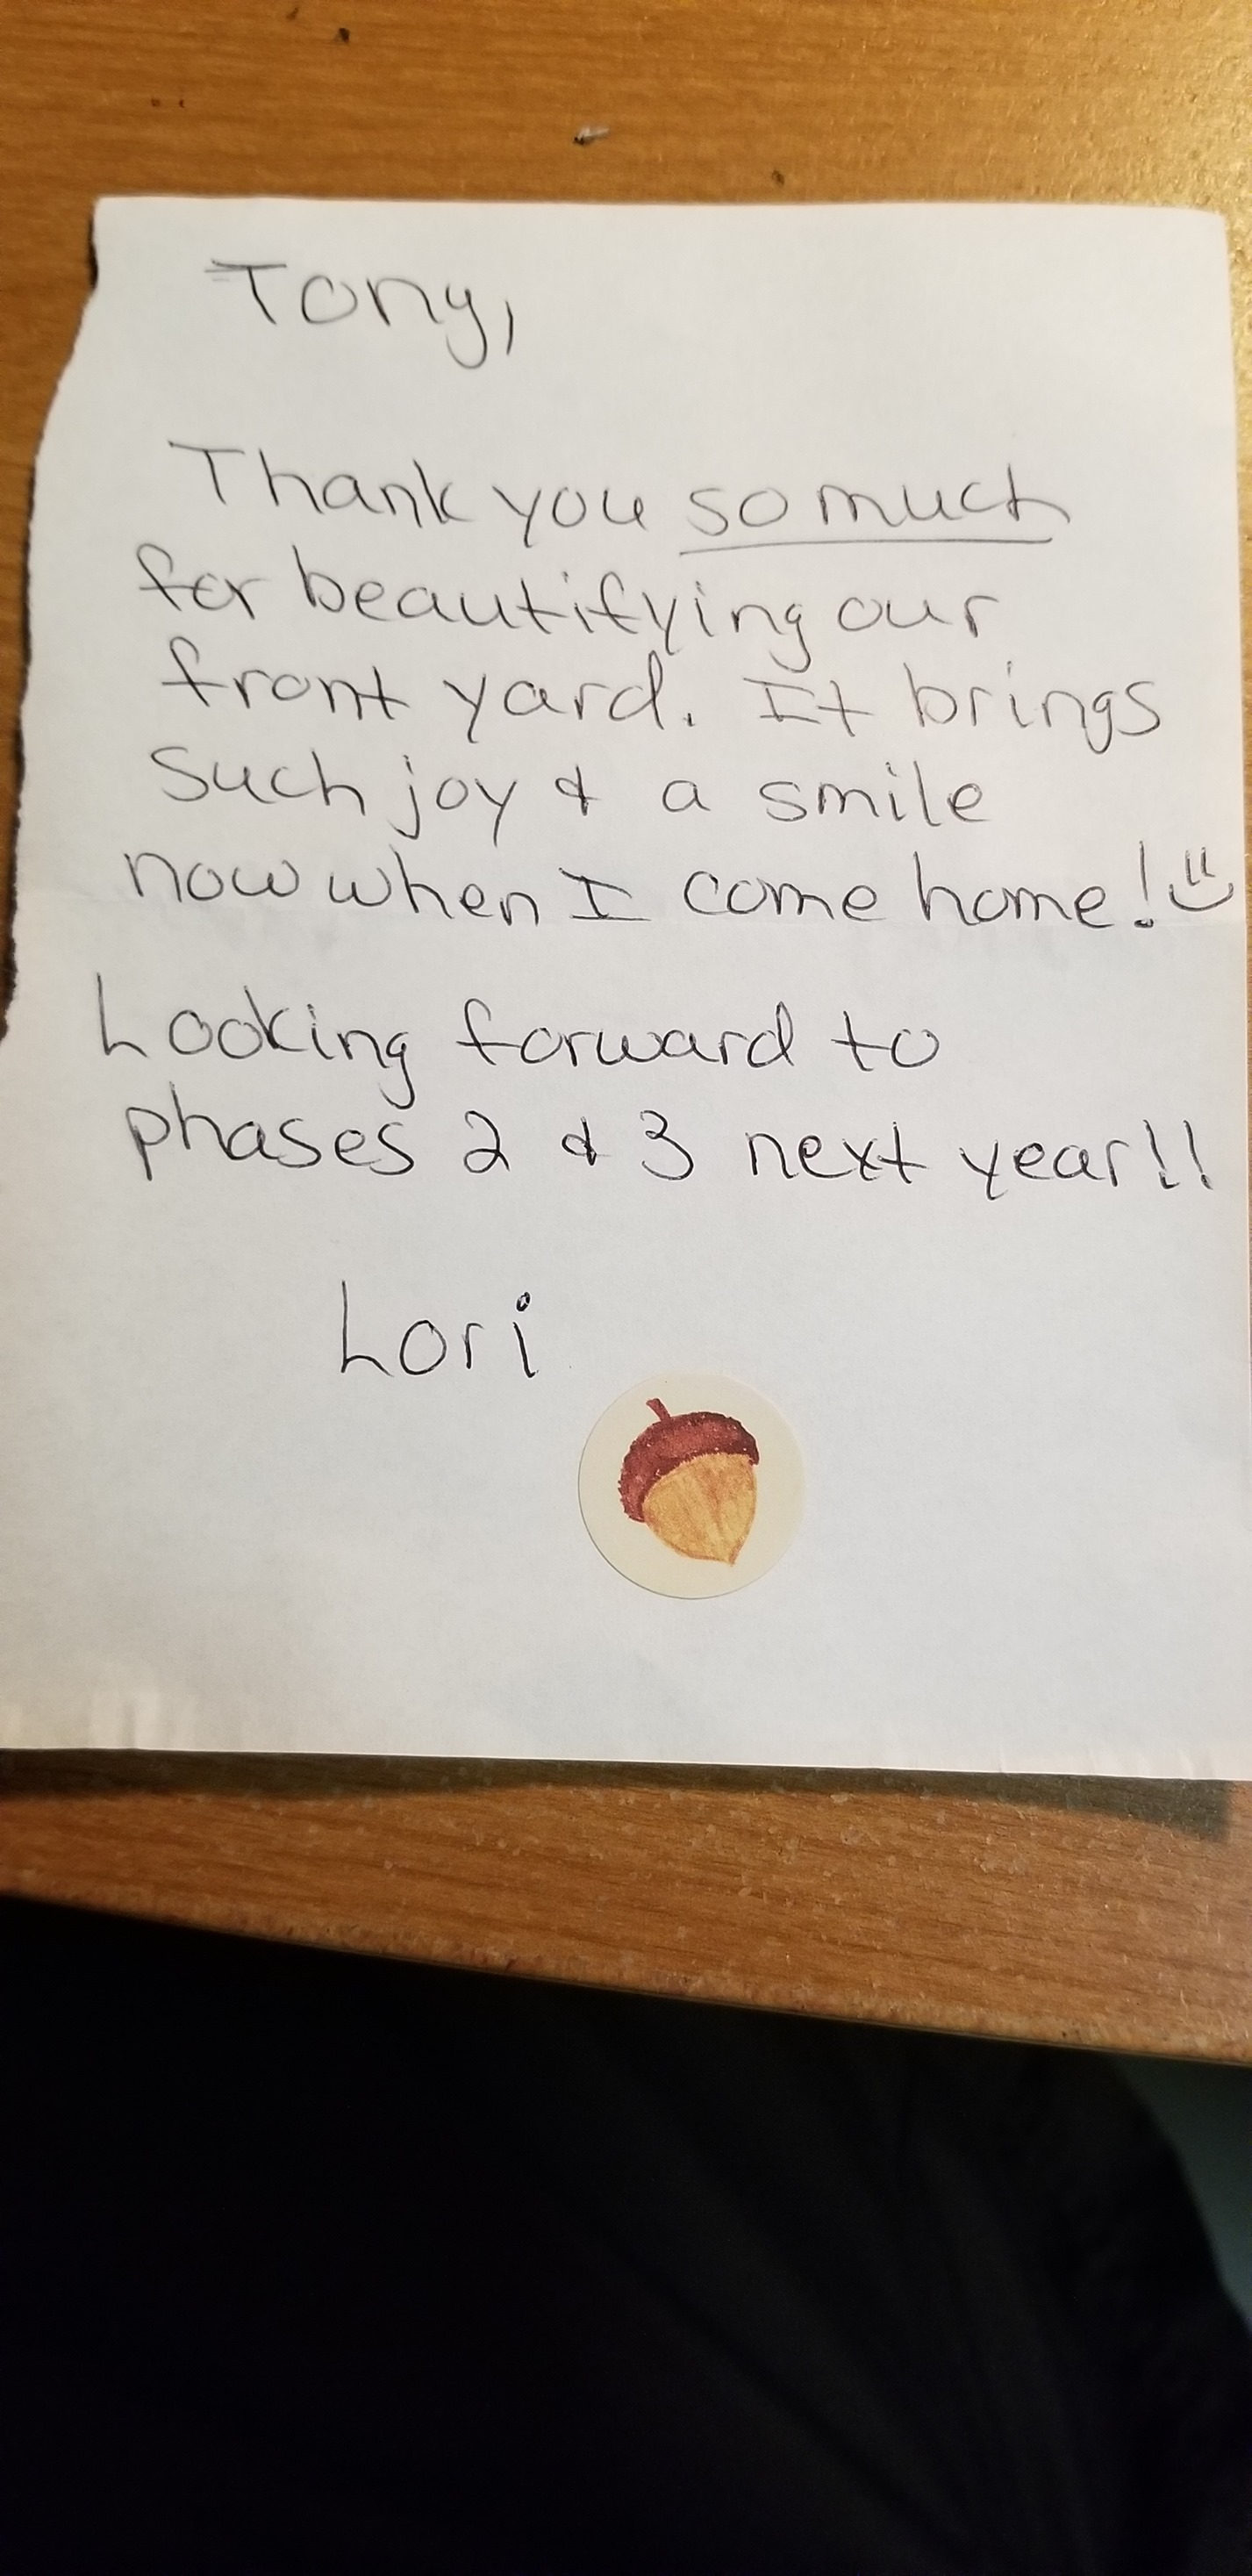 Tony,
Thank you so much
for beautifying our
front yard. It brings
such joy & a smile
now when I come home!
Looking forward to
phases 2 & 3 next year!!
Lori